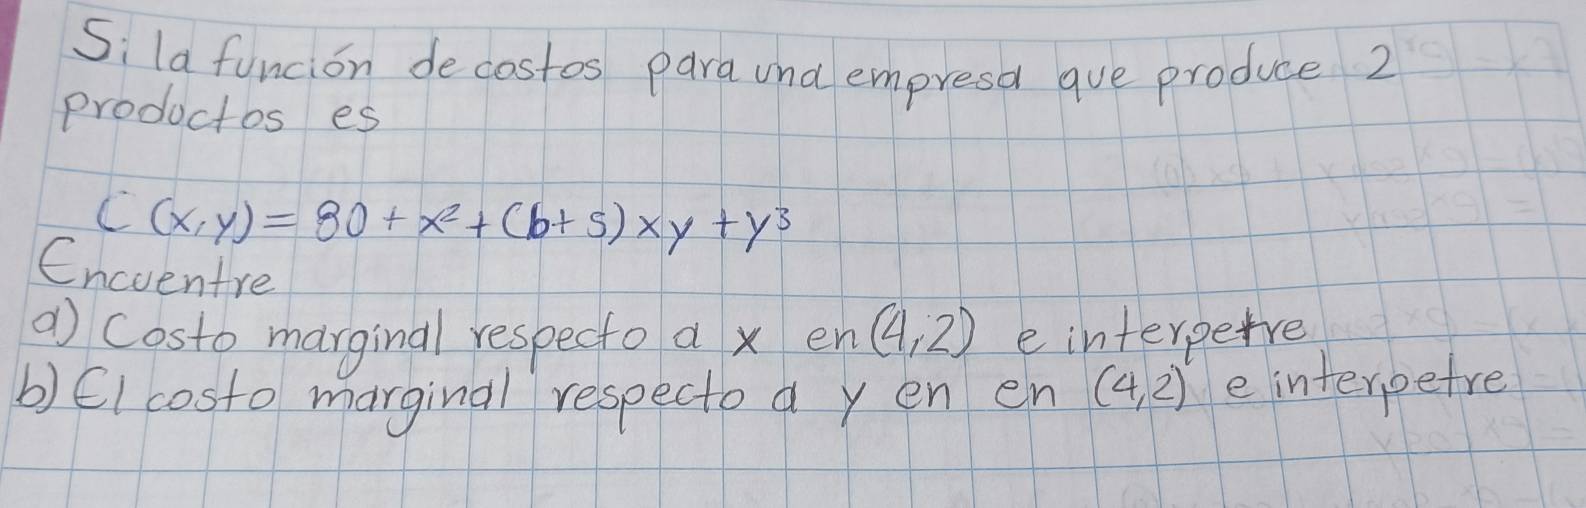 Si la función de costos para una empresa que produce 2
productos es
C(x,y) = 80 + x² + (b+5)xy + y³
Encuentre
a) Costo marginal respecto a x en (4,2) e interpetre
b) El costo marginal respecto a y en en (4,2) e interpetre